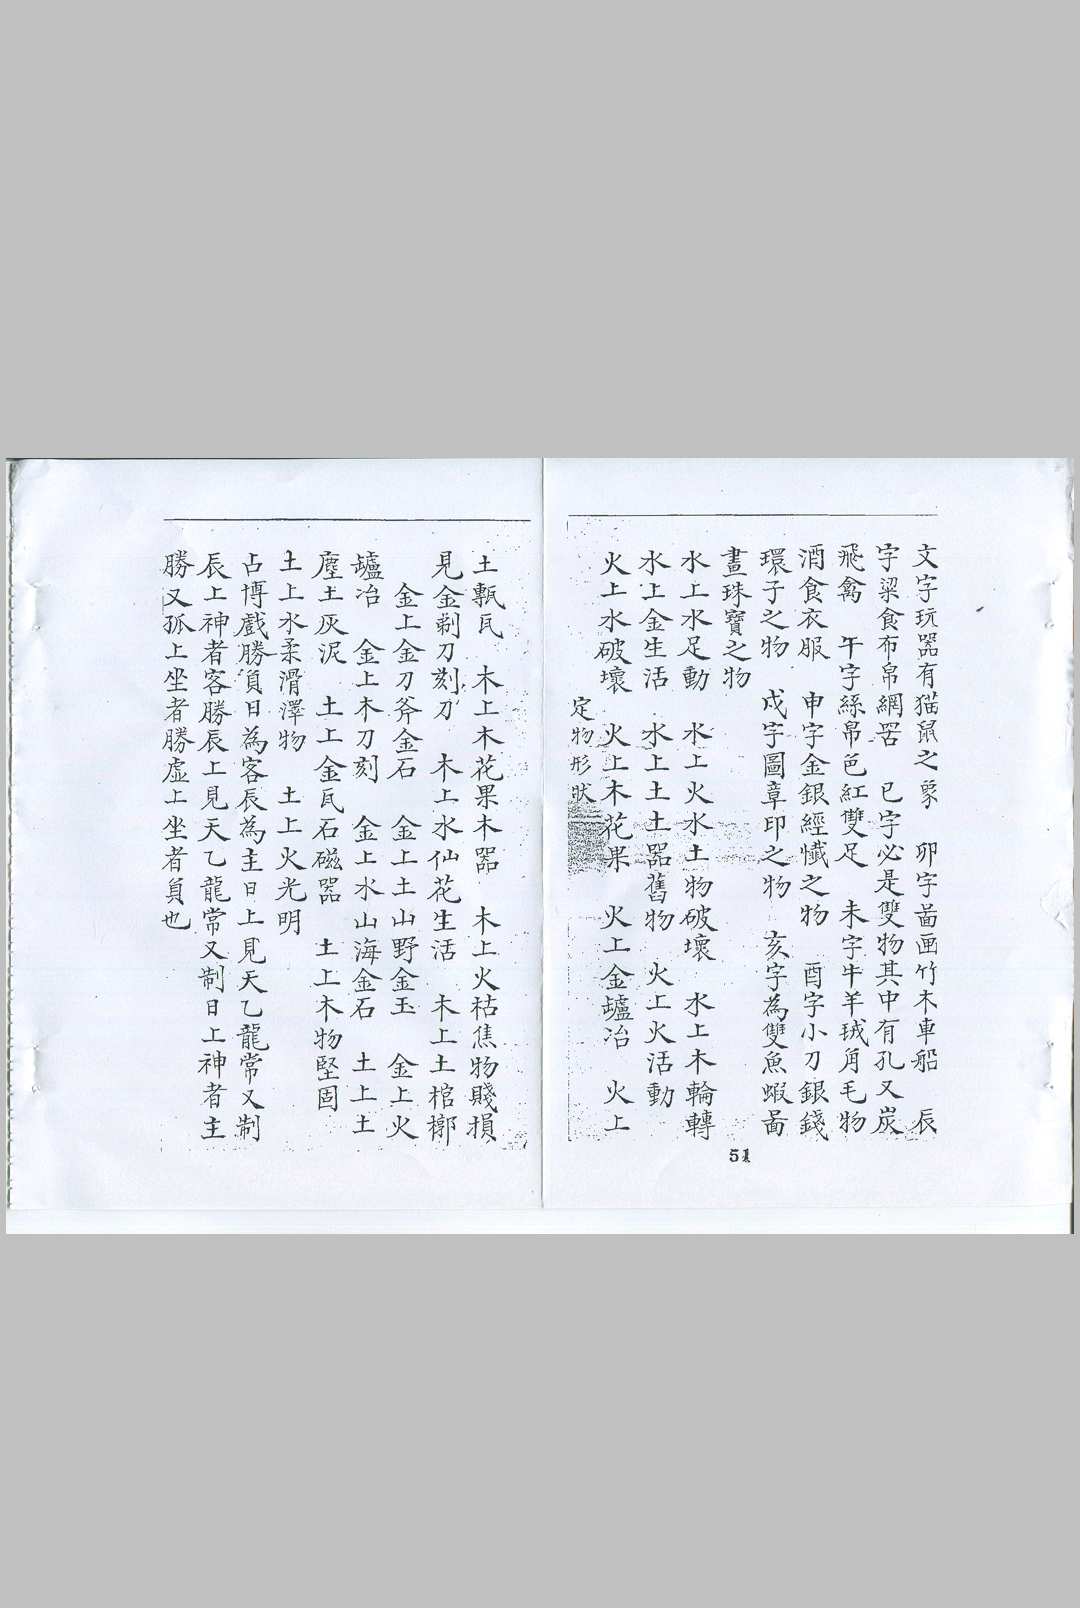 文字玩器有猫鼠之象　卯字啚画竹木車船　辰
字粱食布帛網罟　巳字必是雙物其中有孔又炭
飛禽　午字絲帛色紅雙足　未字牛羊羢角毛物
酒食衣服　申字金銀經懺之物　酉字小刀銀錢
環子之物　戌字圖章印之物　亥字為雙魚蝦啚
畫珠寶之物
水上水足動　水上火水土物破壞　水上木輪轉
水上金生活　水上土土器舊物　火上火活動
火上水破壞　火上木花果　火上金罏冶　火上
定物形狀
51
土甎瓦　木上木花果木器　木上火枯焦物賤損
見金剃刀刻刀　木上水仙花生活　木上土棺槨
金上金刀斧金石　金上土山野金玉　金上火
罏冶　金上木刀刻　金上水山海金石　土上土
塵土灰泥　土上金瓦石磁器　土上木物堅固
土上水柔滑澤物　土上火光明
占博戲勝負日為客辰為主日上見天乙龍常又制
辰上神者客勝辰上見天乙龍常又制日上神者主
勝又孤上坐者勝虛上坐者負也